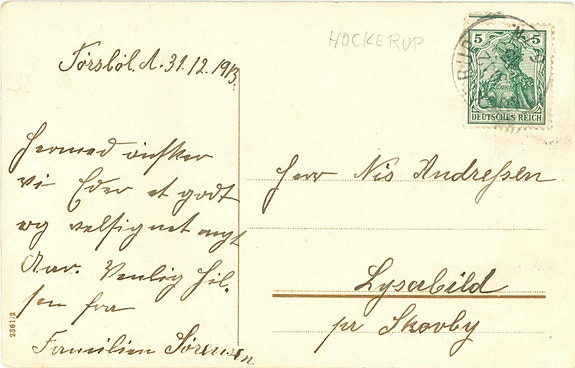 HOCKERUP
Törsböl. d. 31.12.1913.
5 5
DEUTSCHES REICH
Hermed önsker
vi Eder et godt
og velsignet nyt
Aar. Venlig Hil-
sen fra
Familien Sörensen.
Herr Nis Andreßen
Lysabild
pr Skovby
2361/2